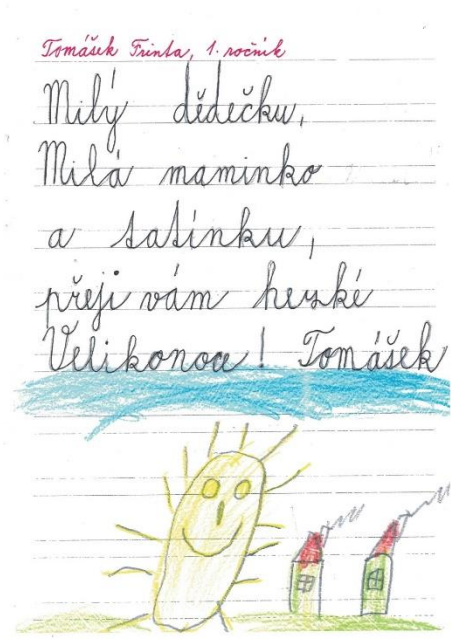 Tomášek Frinta, 1. ročník
Milý dědečku,
Milá maminko
a tatínku,
přeji vám hezké
Velikonoce! Tomášek